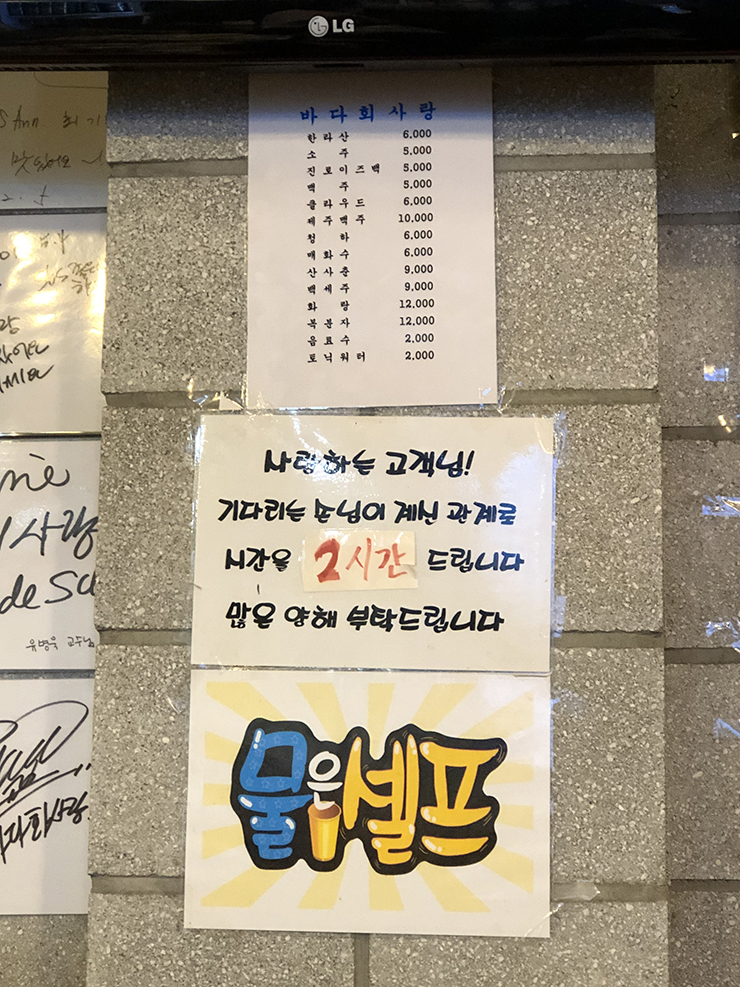 LG
바다회사랑
한라산 6,000
소주 5,000
진로이즈백 5,000
맥주 5,000
클라우드 6,000
제주맥주 10,000
청하 6,000
매화수 6,000
산사춘 9,000
백세주 9,000
화랑 12,000
복분자 12,000
음료수 2,000
토닉워터 2,000
사랑하는 고객님!
기다리는 손님이 계신 관계로
시간을 2시간 드립니다
많은 양해 부탁드립니다
물은 셀프
맛있어요
사랑
de su
유병욱 교수님